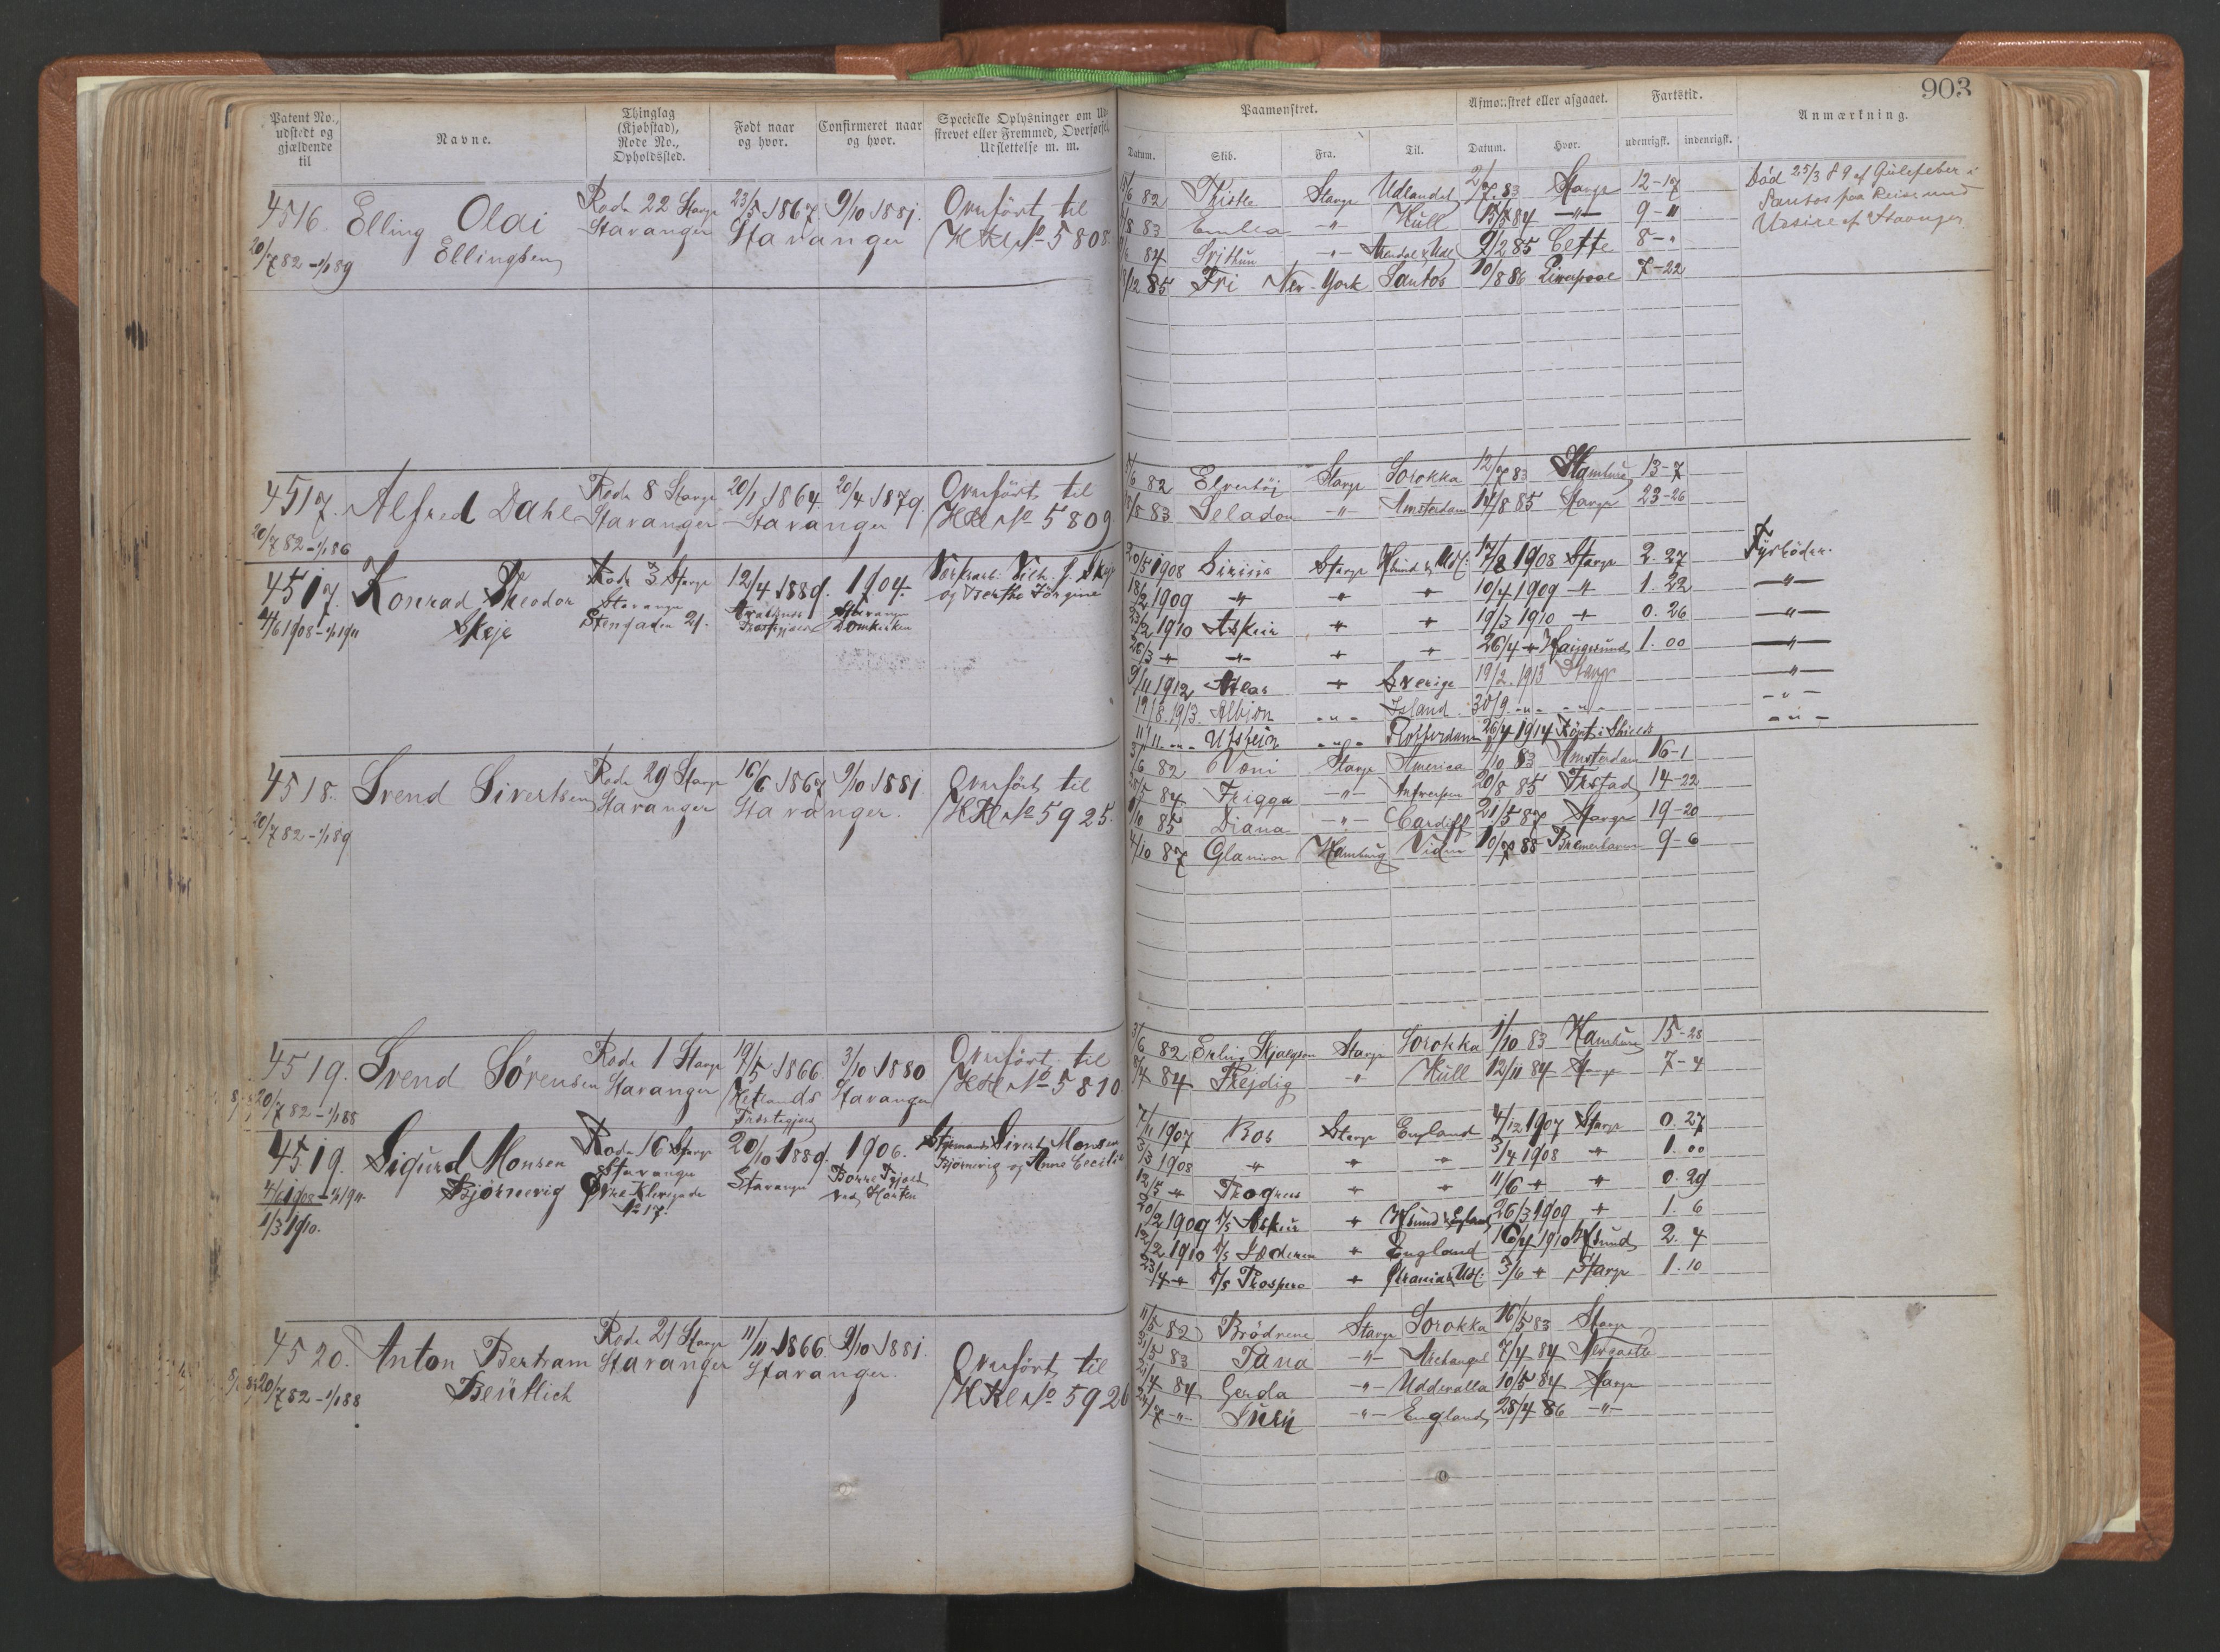 903
Patent No., udstedt og gjældende til
Navne.
Thinglag (Kjøbstad), Rode No., Opholdssted.
Født naar og hvor.
Confirmeret naar og hvor.
Specielle Oplysninger om Ud-
skrevet eller Fremmed, Overførsel,
Udslettelse m. m.
Paamønstret.
Afmønstret eller afgaaet.
Fartstid.
Anmærkning.
Datum. Skib. Fra. Til. Datum. Hvor. udenrigsk. indenrigsk.
4516. Elling Olai Rode 22 Stavgr 23/5 1867 9/10 1881. Overført til
20/7 82 - 1/1 89 Ellingsen Stavanger Stavanger HKl No 5808
/6 82 Thistle Stavgr Udlandet 2/7 83 Stavgr 12-17
/8 83 Emlea -"- Hull 84 -"- 9-"
84 Svithun -"- 9/2 85 Cette 8-"
/12 85 Fri New-York Santos 10/8 86 Liverpool 7-22
Død 25/3 89 af Gulefeber i
Santos paa Reise med
af Stavanger
4517. Alfred Dahl Rode 8 Stavgr 20/1 1864. 20/4 1879. Overført til
20/7 82 - 1/1 86 Stavanger Stavanger HKl No 5809
/6 82 Elverhöj Stavgr Sorokka 12/7 83 Hamburg 13-7
/5 83 Seladon -"- Amsterdam /8 85 Stavgr 23-26
4517. Konrad Theodor Skeje Rode 3 Stavgr 12/4 1889. 1904. Vilh. J. Skeje
4/6 1908 - 1/1 1911 Stavanger Stengaden 21. Præstegjæld Stavanger Domkirken og Berthe Jörgine
20/5 1908 Sirius Stavgr 17/8 1908 Stavgr 2. 27 Fyrböder.
18/2 1909 " " " 10/4 1909 " 1. 22 -"-
23/2 1910 Askur " " 19/3 1910 " 0. 26 -"-
26/3 " -"- " " 26/4 " Haugesund 1. 00 -"-
9/11 1912 Atlas " Sverige 19/2 1913 Stavgr -"-
19/8 1913 Albion -"- Island 30/9 -"- -"- -"-
11/11 -"- Utstein -"- Rotterdam 26/4 1914 -"-
4518. Svend Sivertsen Rode 29 Stavgr 16/6 1867 9/10 1881. Overført til
20/7 82 - 1/1 89 Stavanger Stavanger. HKl No 5925.
/6 82 Stavgr America /10 83 Amsterdam 16-1
/5 84 Frigga -"- Antwerpen 20/8 85 14-22
/10 85 Diana -"- Cardiff 21/5 87 Stavgr 19-20
4/10 87 Hamburg 10/7 88 Bremerhaven 9-6
4519. Svend Sørensen Rode 1 Stavgr 19/5 1866. 3/10 1880 Overført til
20/7 82 - 1/1 88 Stavanger Hetlands Præstegjæld Stavanger HKl No 5810
3/6 82 Erling Skjalgson Stavgr Sorokka 1/10 83 Hamburg 15-28
8/4 84 Frejdig " Hull 12/11 84 Stavgr 7-4
4519. Sigurd Monsen Bjørnevig Rode 16 Stavgr 20/10 1889. 1906. Sivert Monsen
4/6 1908 - 1/1 1911 Stavanger Øvre Klevegade No 17. Stavanger Borre Pgjæld ved Horten Bjørnevig og Anne Cecilie
1/3 1910.
7/11 1907 Rob Stavgr England 4/12 1907 Stavgr 0. 27
3/3 1908 " " " 3/4 1908 " 1. 00
12/5 " Progress " " 11/6 " " 0. 29
20/2 1909 D/s Askur " Hsund & England 26/3 1909 " 1. 6
12/2 1910 D/s Jæderen " England 16/4 1910 Hsund 2. 4
23/4 " D/s Prospero " 3/6 " Stavgr 1. 10
4520. Anton Bertram Rode 21 Stavgr 11/11 1866. 9/10 1881. Overført til
20/7 82 - 1/1 88 Bentlich Stavanger Stavanger. HKl No 5926
11/5 82 Brødrene Stavgr Sorokka 16/5 83 Stavgr
31/5 83 Tana -"- Archangel 7/4 84 Newcastle
21/4 84 Gerda -"- Uddevalla 10/5 84 Stavgr
/7 -"- -"- England 28/4 86 -"-